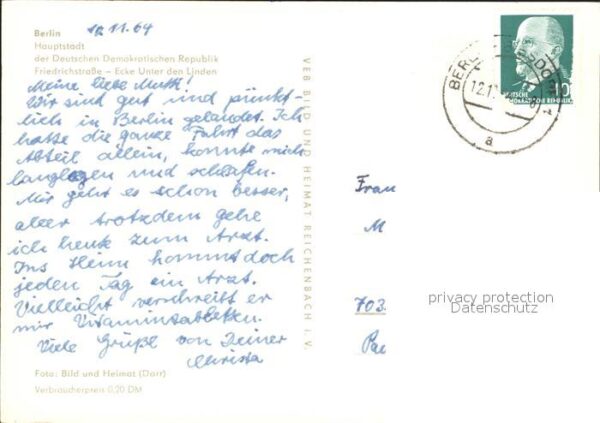 Berlin
Hauptstadt
der Deutschen Demokratischen Republik
Friedrichstraße – Ecke Unter den Linden
10.11.64
Meine liebe Mutti!
Wir sind gut und pünkt-
lich in Berlin gelandet. Ich
hatte die ganze Fahrt das
Abteil allein, konnte mich
langlegen und schlafen.
Mir geht es schon besser,
aber trotzdem gehe
ich heute zum Arzt.
Ins Heim kommt doch
jeden Tag ein Arzt.
Vielleicht verschreibt er
mir Vitamintabletten.
Viele Grüße von Deiner
Christa
Foto: Bild und Heimat (Darr)
Verbraucherpreis 0,20 DM
VEB BILD UND HEIMAT REICHENBACH I. V.
10
DEUTSCHE
DEMOKRATISCHE REPUBLIK
12.11
a
Frau
M
703
privacy protection
Datenschutz